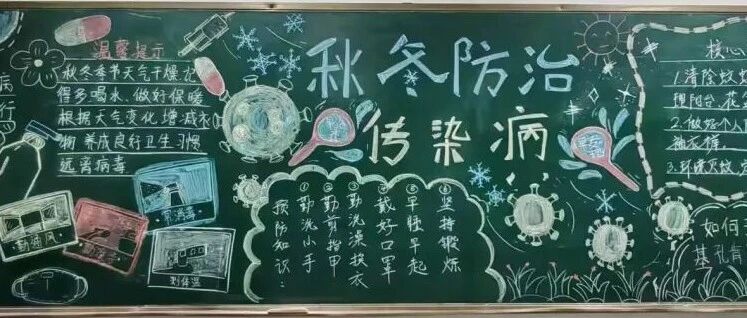 病
行
温馨提示
秋冬季节天气干燥 记
得多喝水、做好保暖
根据天气变化,增减衣
物 养成良好卫生习惯
远离病毒
勤通风
常消毒
测体温
秋冬防治
传染病
预防知识:
①勤洗小手
②勤剪指甲
③勤洗澡换衣
④戴好口罩
⑤早睡早起
⑥坚持锻炼
核心
1.清除蚊
阳台、花
2.做好个人
3.环境灭蚊
如何
基孔肯